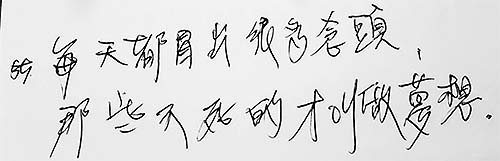 每天都冒出很多念頭，
那些不死的才叫做夢想.